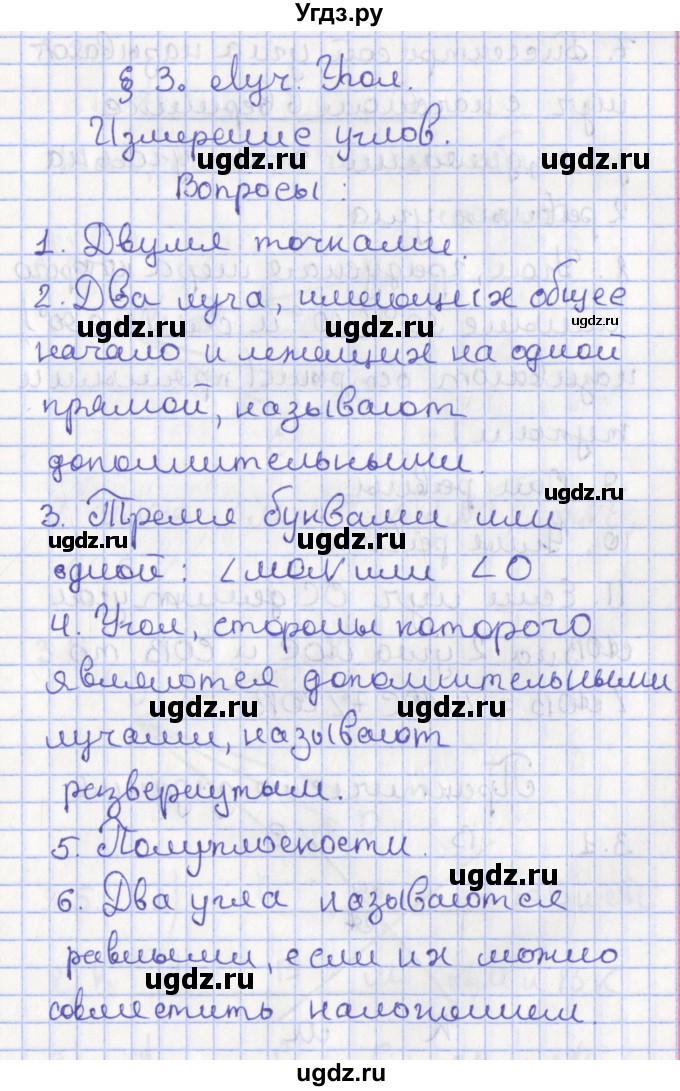 Угдз.ру
§ 3. Луч. Угол.
Измерение углов.
ugdz.ru ugdz.ru
Вопросы:
1. Двумя точками.
2. Два луча, имеющих общее
ugdz.ru ugdz.ru ugdz.ru
начало и лежащих на одной
прямой, называют
дополнительными.
ugdz.ru
3. Тремя буквами или
ugdz.ru ugdz.ru
одной: ∠MON или ∠O
4. Угол, стороны которого
являются дополнительными
ugdz.ru ugdz.ru
лучами, называют
развернутым.
5. Полуплоскости.
ugdz.ru
6. Два угла называются
равными, если их можно
ugdz.ru
совместить наложением.
ugdz.ru